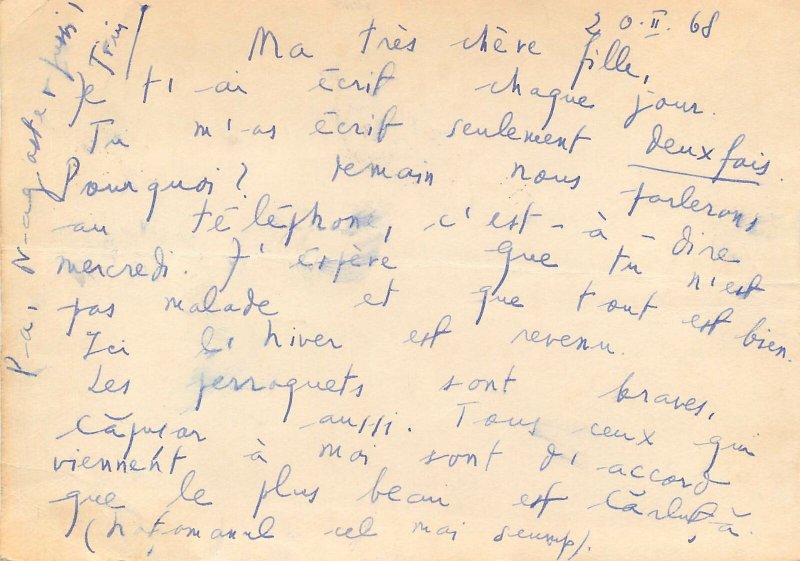 20.II.68
Ma très chère fille,
Je t'-ai écrit chaque jour.
Tu m'-as écrit seulement deux fois.
Pourquoi? Demain nous parlerons
au téléphone, c'est-à-dire
mercredi. J'espère que tu n'est
pas malade et que tout est bien.
Ici l'hiver est revenu.
Les perroquets sont braves,
Căpușor aussi. Tous ceux qui
viennent à moi sont d'accord
que le plus beau est Cărluță.
(hoțomanul cel mai scump).